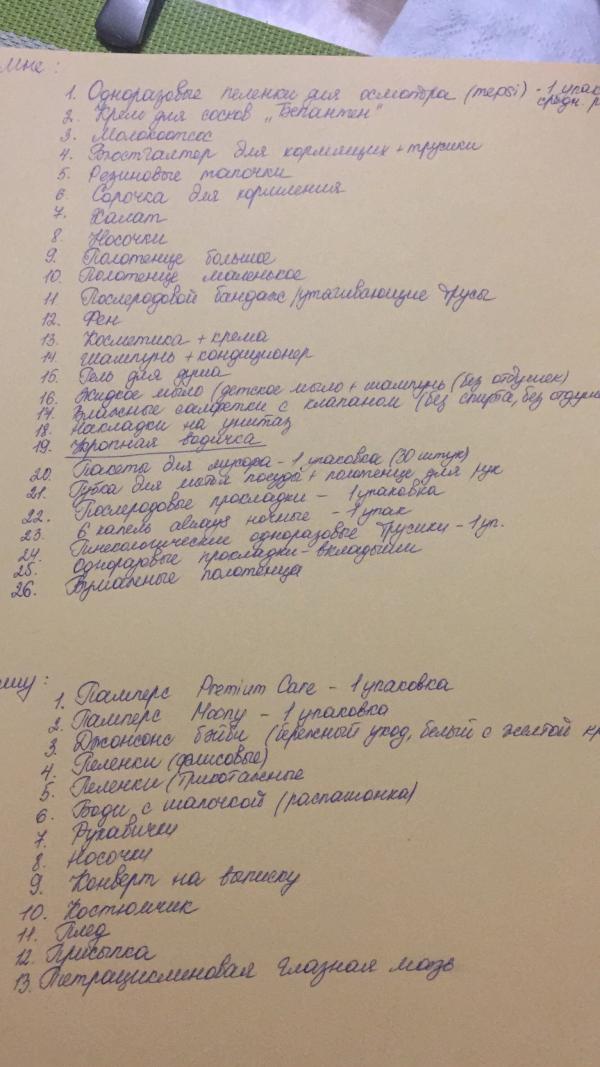 мне:
1. Одноразовые пеленки для осмотра (mepsi) - 1 упак
средн. р
2. Крем для сосков „Бепантен"
3. Молокоотсос
4. Бюстгалтер для кормящих + трусики
5. Резиновые тапочки
6. Сорочка для кормления
7. Халат
8. Носочки
9. Полотенце большое
10. Полотенце маленькое
11. Послеродовой бандаж/утягивающие трусы
12. Фен
13. Косметика + крема
14. Шампунь + кондиционер
15. Гель для душа
16. Жидкое мыло (детское мыло + шампунь (без отдушек)
17. Влажные салфетки с клапаном (без спирта, без отдуш
18. Накладки на унитаз
19. Укропная водичка
20. Пакеты для мусора - 1 упаковка (30 штук)
21. Губка для мытья посуды + полотенце для рук
22. Послеродовые прокладки - 1 упаковка
23. 6 капель always ночные - 1 упак
24. Гинекологические одноразовые трусики - 1 уп.
25. Одноразовые прокладки-вкладыши
26. Бумажные полотенца
1. Памперс Premium Care - 1 упаковка
2. Памперс Moony - 1 упаковка
3. Джонсонс бэйби (бережный уход, белый с желтой кр
4. Пеленки (флисовые)
5. Пеленки (трикотажные
6. Боди с шапочкой (распашонка)
7. Рукавички
8. Носочки
9. Конверт на выписку
10. Костюмчик
11. Плед
12. Присыпка
13. Тетрациклиновая глазная мазь